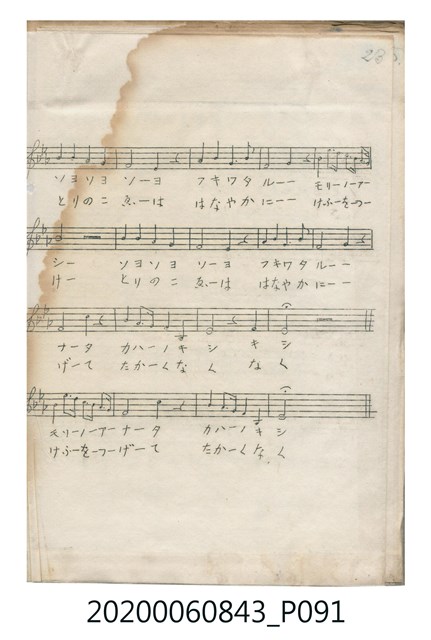 ソヨソヨ ソーヨ フキワタルーー モリーノーアー
とりのこ ゑ.ーは はなやかにーー けふーをつー
シー ソヨソヨ ソーヨ フキワタルーー
けー とりのこ ゑ.ーは はなやかにーー
ナータ カハーノキシ キシ
げーて たかーくなく なく
モリーノーアーナータ カハーノキシ
けふーをつーげーて たかーくなく
20200060843_P091